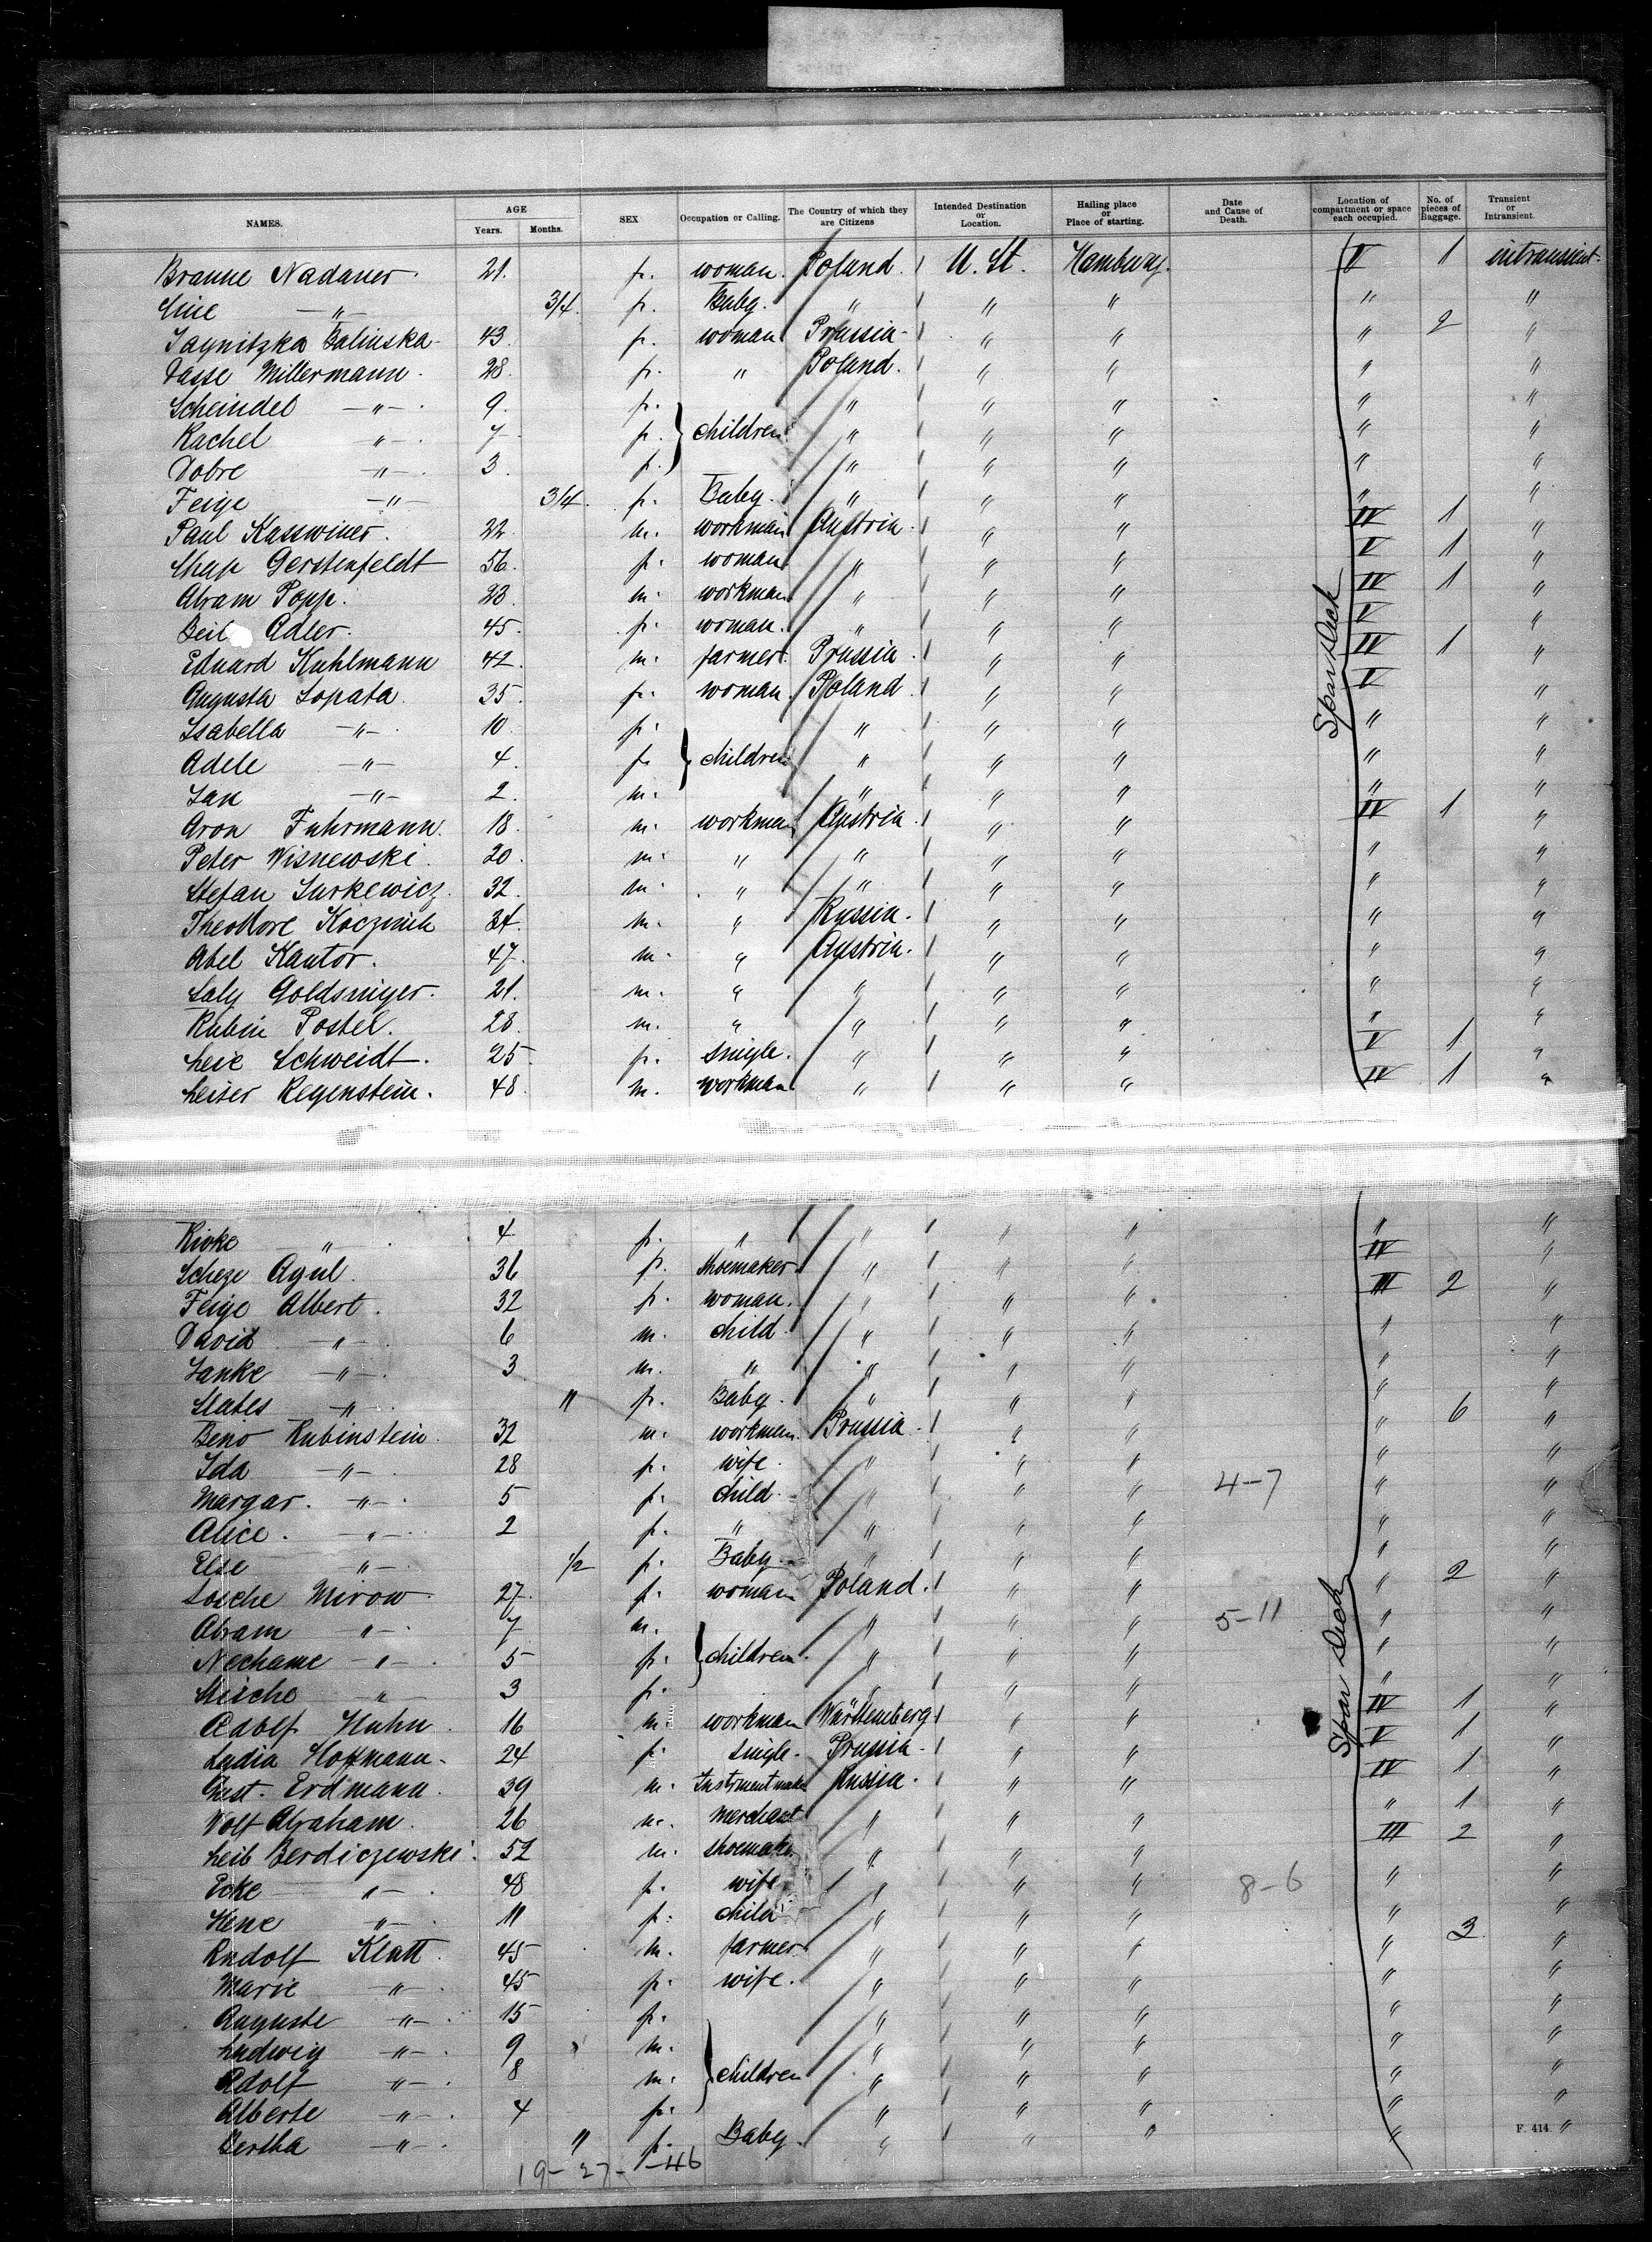 NAMES. AGE Years. Months. SEX Occupation or Calling. The Country of which they are Citizens Intended Destination or Location. Hailing place or Place of starting. Date and Cause of Death. Location of compartment or space each occupied. No. of pieces of Baggage. Transient or Intransient.
Braune Nadaner 21. f. woman. Poland. U. St. Hamburg. V 1 intransient.
" 3/4. f. Baby. " " " " "
Balinska 43. f. woman Prussia " " " 2 "
Dasse Millermann. 28. f. " Poland. " " " "
Scheindel " 9. f. " " " " "
Rachel " 7 f. children " " " " "
Dobre " 3. f. " " " " "
Feige " 3/4. f. Baby. " " " " "
Paul Kasswiner. 22. m. workman Austria. " " IV 1 "
Gerstenfeldt 56. f. woman " " " V 1 "
Abram Popp. 23. m. workman " " " IV 1 "
Beil Adler. 45. f. woman. " " " V "
Eduard Kuhlmann 42. m. farmer. Prussia. " " IV 1 "
Augusta Lopata. 35. f. woman. Poland. " " V "
Isabella " 10. f. " " " " "
Adele " 4. f. children " " " " "
Jan " 2. m. " " " " "
Aron Fuhrmann. 18. m. workman Austria. " " IV 1 "
Peter Wisnewski. 20. m. " " " " " "
Stefan Jurkewicz. 32. m. " " " " " "
Theodore 34. m. " Russia. " " " "
Abel Kantor. 47. m. " Austria. " " " "
Saly Goldsinger. 21. m. " " " " " "
Rubin Postel. 28. m. " " " " " "
Leie Schweidt. 25 f. single. " " " V 1 "
Leiser Regenstein. 48. m. workman " " " IV 1 "
Spar Deck
Rivke " 4 f. " " " " " "
Scheze Agul. 36 f. shoemaker " " " IV "
Feige Albert. 32 f. woman. " " " III 2 "
David " 6 m. child " " " " "
Janke " 3 m. " " " " " "
Slates " " f. Baby. " " " " "
Beno Rubinstein. 32 m. workman. Prussia. " " " 6 "
Ida " 28 f. wife. " " " " "
Margar. " 5 f. child " " " 4-7 " "
Alice. " 2 f. " " " " " "
Else " 1/2 f. Baby " " " " "
Sosche Mirow 27. f. woman Poland. " " " 2 "
Abram " 7 m. " " " 5-11 " "
Nechame " 5 f. children. " " " " "
" 3 f. " " " " "
Adolf Huhn. 16 m. workman Württemberg " " IV 1 "
Lydia Hoffmann. 24 f. single. Prussia. " " V 1 "
Gust. Erdmann. 39 m. Instrmentmaker Russia. " " IV 1 "
Wolf Abraham. 26 m. Merchant " " " " 1 "
Leib Berdiczewski. 52 m. shoemaker " " " III 2 "
Ecke " 48 f. wife " " " 8-6 " "
Hene " 11 f. child " " " " "
Rudolf Klatt. 45 m. farmer " " " " 3 "
Marie " 45 f. wife. " " " " "
Auguste " 15 f. " " " " "
Ludwig " 9 m. " " " " "
Adolf " 8 m. children " " " " "
Alberte " 4 f. " " " " "
Bertha " " f. Baby. " " " " "
Spar Deck
F. 414.
19-27-46